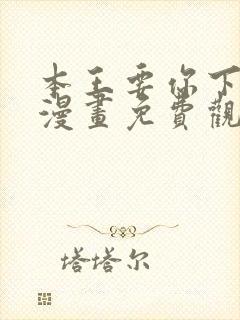 本王要你下
漫畫免費觀
塔塔尔